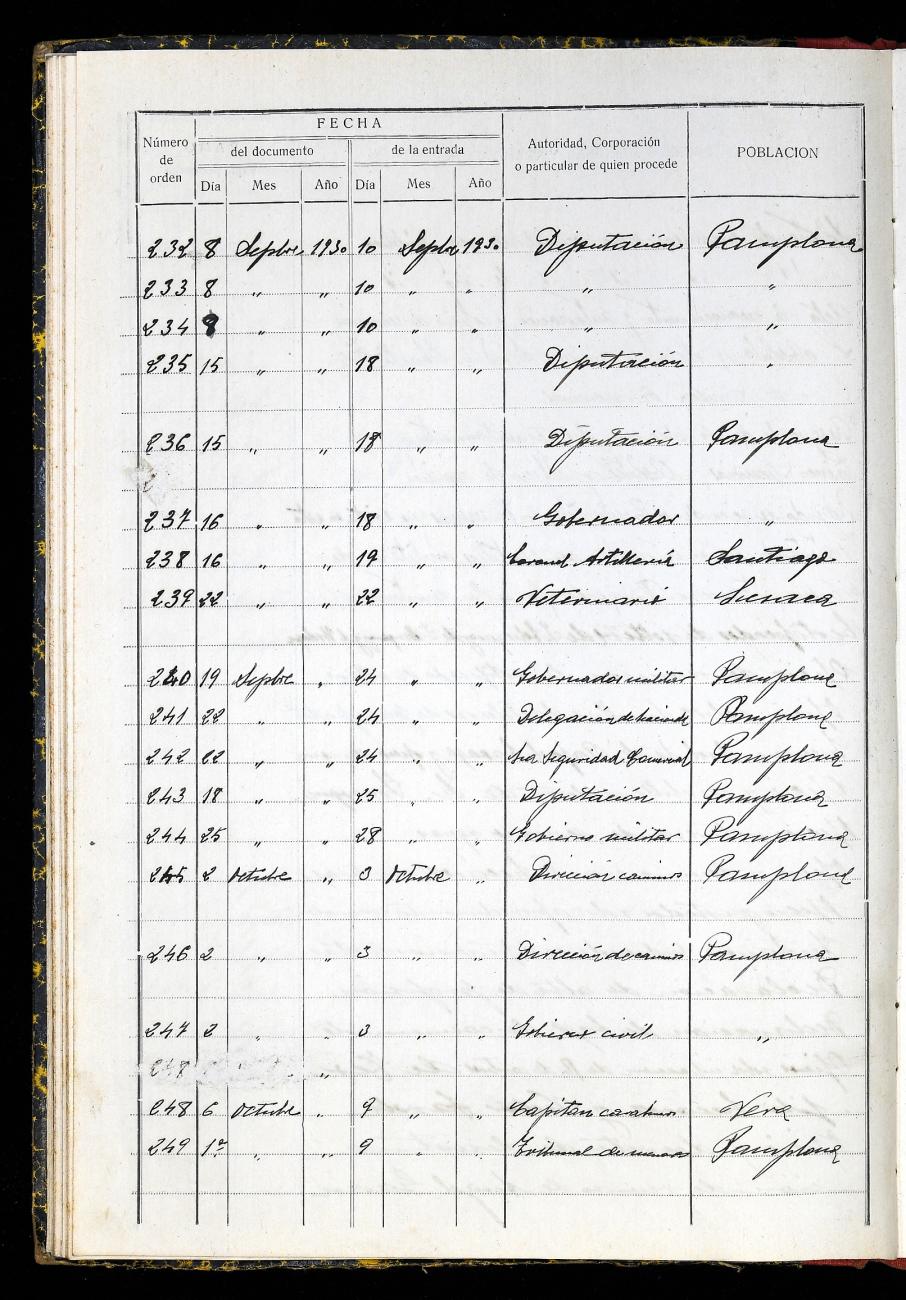 FECHA
Número de orden
del documento de la entrada
Autoridad, Corporación o particular de quien procede
POBLACION
Día Mes Año Día Mes Año
232 8 Sepbre 1930 10 Sepbre 1930 Diputación Pamplona
233 8 " " 10 " " " "
234 8 " " 10 " " " "
235 15 " " 18 " " Diputación "
236 15 " " 18 " " Diputación Pamplona
237 16 " " 18 " " Gobernador "
238 16 " " 19 " " Artillería Santiago
239 22 " " 22 " " Veterinario
240 19 Sepbre " 24 " " Gobernador militar Pamplona
241 22 " " 24 " " Delegación de hacienda Pamplona
242 22 " " 24 " " Seguridad Pamplona
243 18 " " 25 " " Diputación Pamplona
244 25 " " 28 " " Gobierno militar Pamplona
245 2 Octubre " 3 Octubre " Dirección caminos Pamplona
246 2 " " 3 " " Dirección de caminos Pamplona
247 2 " " 3 " " Gobierno civil "
248 "
248 6 Octubre " 9 " " Capitan Vera
249 1º " " 9 " " Tribunal de menores Pamplona